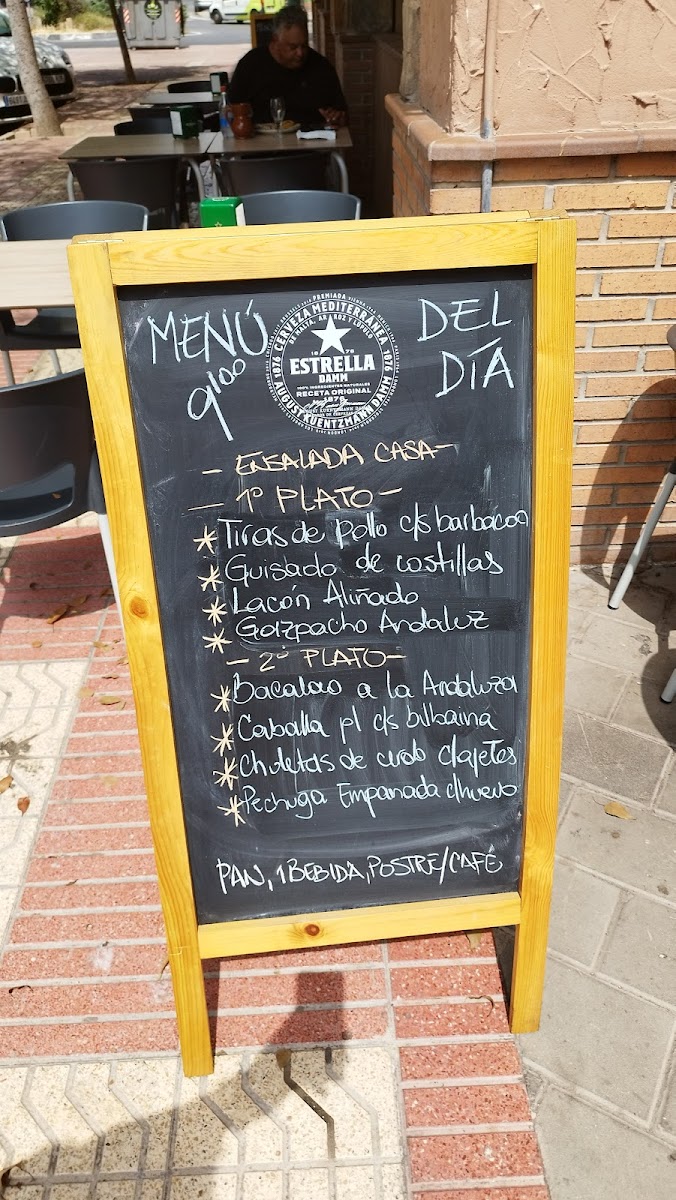 MENÚ DEL DÍA
9'00
PREMIADA
CERVEZA MEDITERRÁNEA
DE MALTA, ARROZ Y LÚPULO
1876 1876
ESTRELLA
DAMM
100% INGREDIENTES NATURALES
RECETA ORIGINAL
1876
AUGUST KUENTZMANN DAMM
- ENSALADA CASA -
- 1º PLATO -
* Tiras de pollo c/s barbacoa
* Guisado de costillas
* Lacón Aliñado
* Gazpacho Andaluz
- 2º PLATO -
* Bacalao a la Andaluza
* Caballa pl c/s bilbaina
* Chuletas de cerdo c/ajetes
* Pechuga Empanada c/huevo
PAN, 1 BEBIDA, POSTRE/CAFÉ